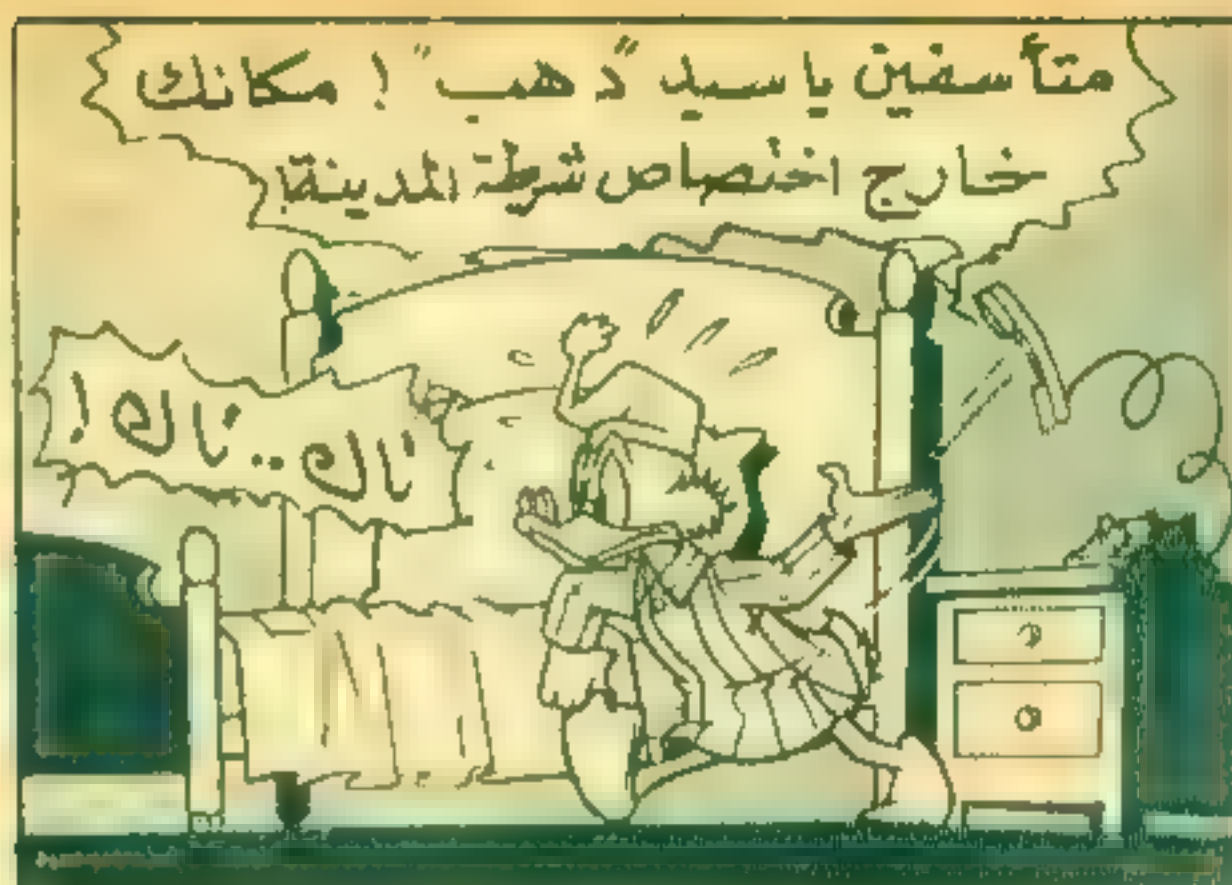 متأسفين يا سيد "دهب" ! مكانك
خارج اختصاص شرطة المدينة!
ناك .. ناك !